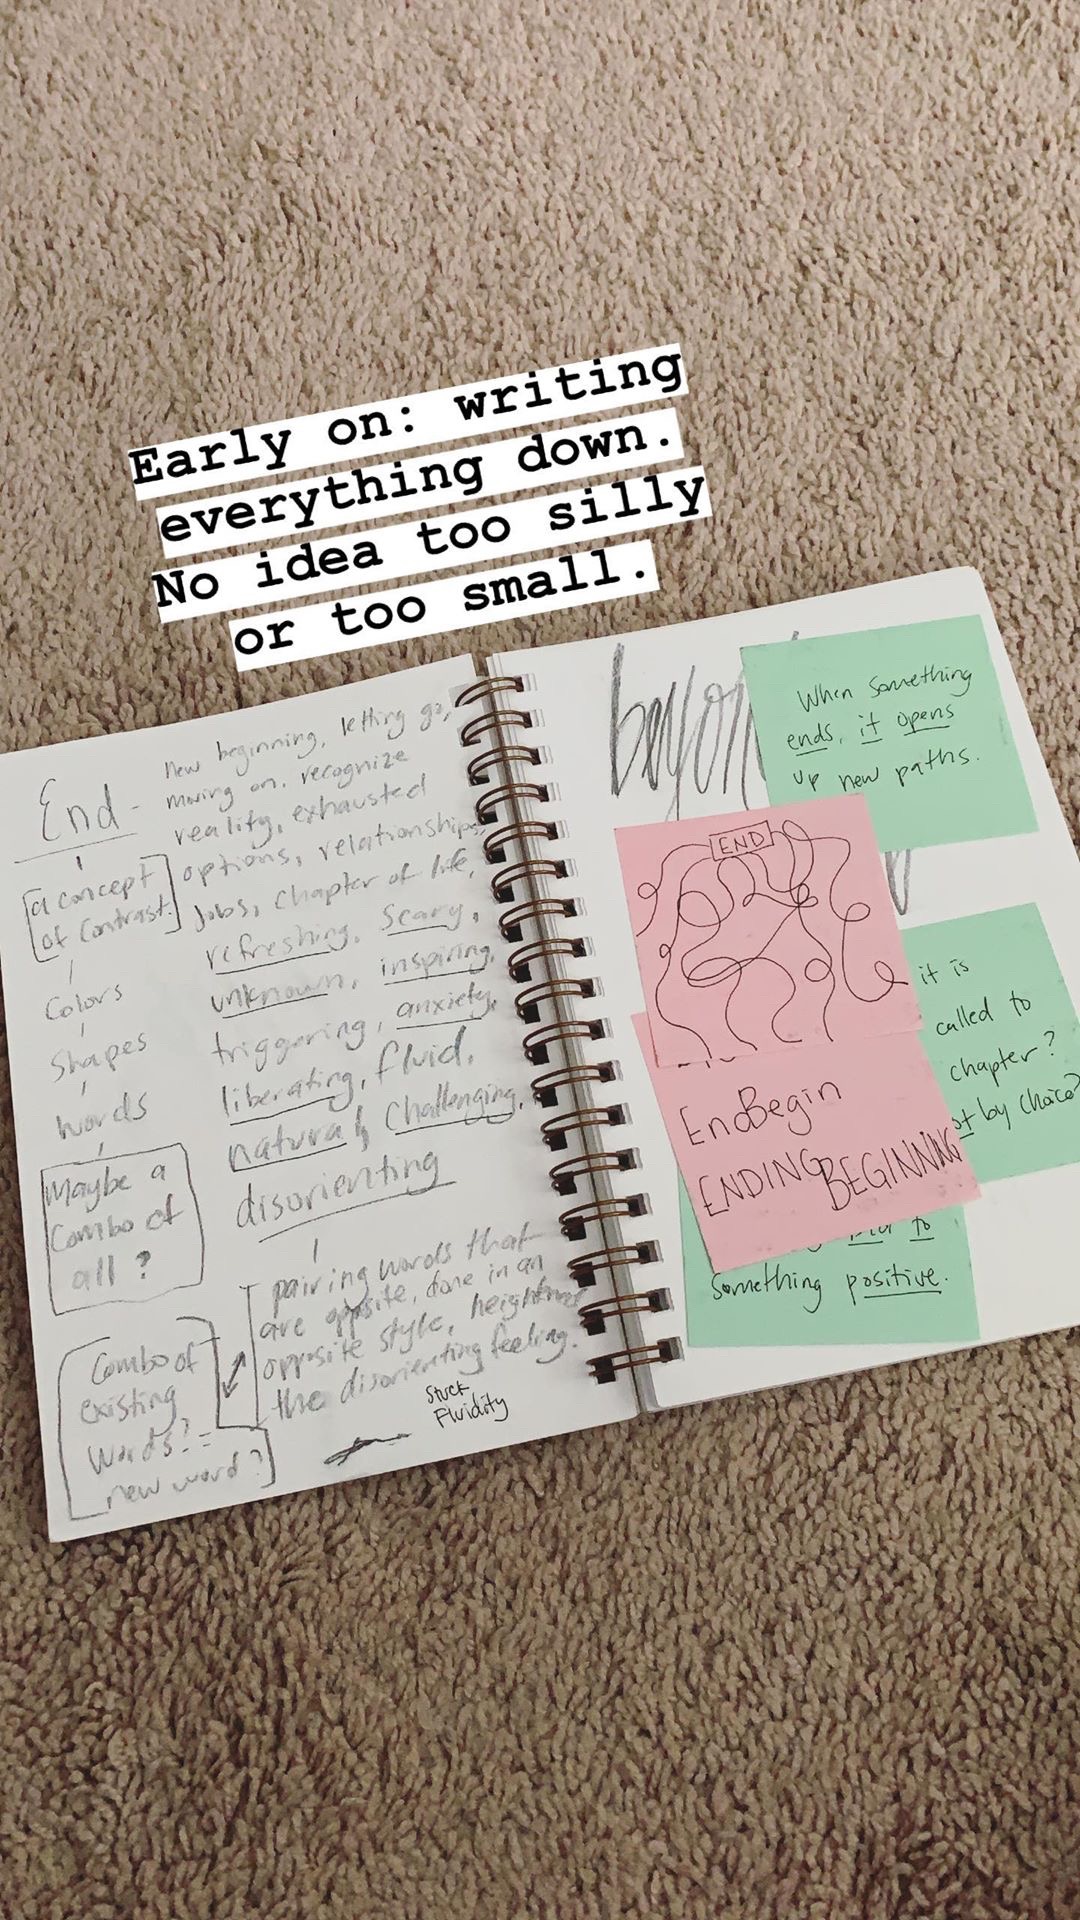 Early on: writing
everything down.
No idea too silly
or too small.
End - new beginning, letting go,
moving on, recognize
reality, exhausted
options, relationships,
jobs, chapter of life,
refreshing, scary,
unknown, inspiring,
triggering, anxiety,
liberating, fluid,
natural, challenging,
disorienting
a concept
of contrast.
Colors
Shapes
Words
Maybe a
Combo of
all?
Combo of
existing
words? =
new word?
pairing words that
are opposite, done in an
opposite style, heightens
the disorienting feeling.
Stuck
Fluidity
When something
ends, it opens
up new paths.
END
it is
called to
chapter?
by choice?
EndBegin
ENDING BEGINNING
to
Something positive.